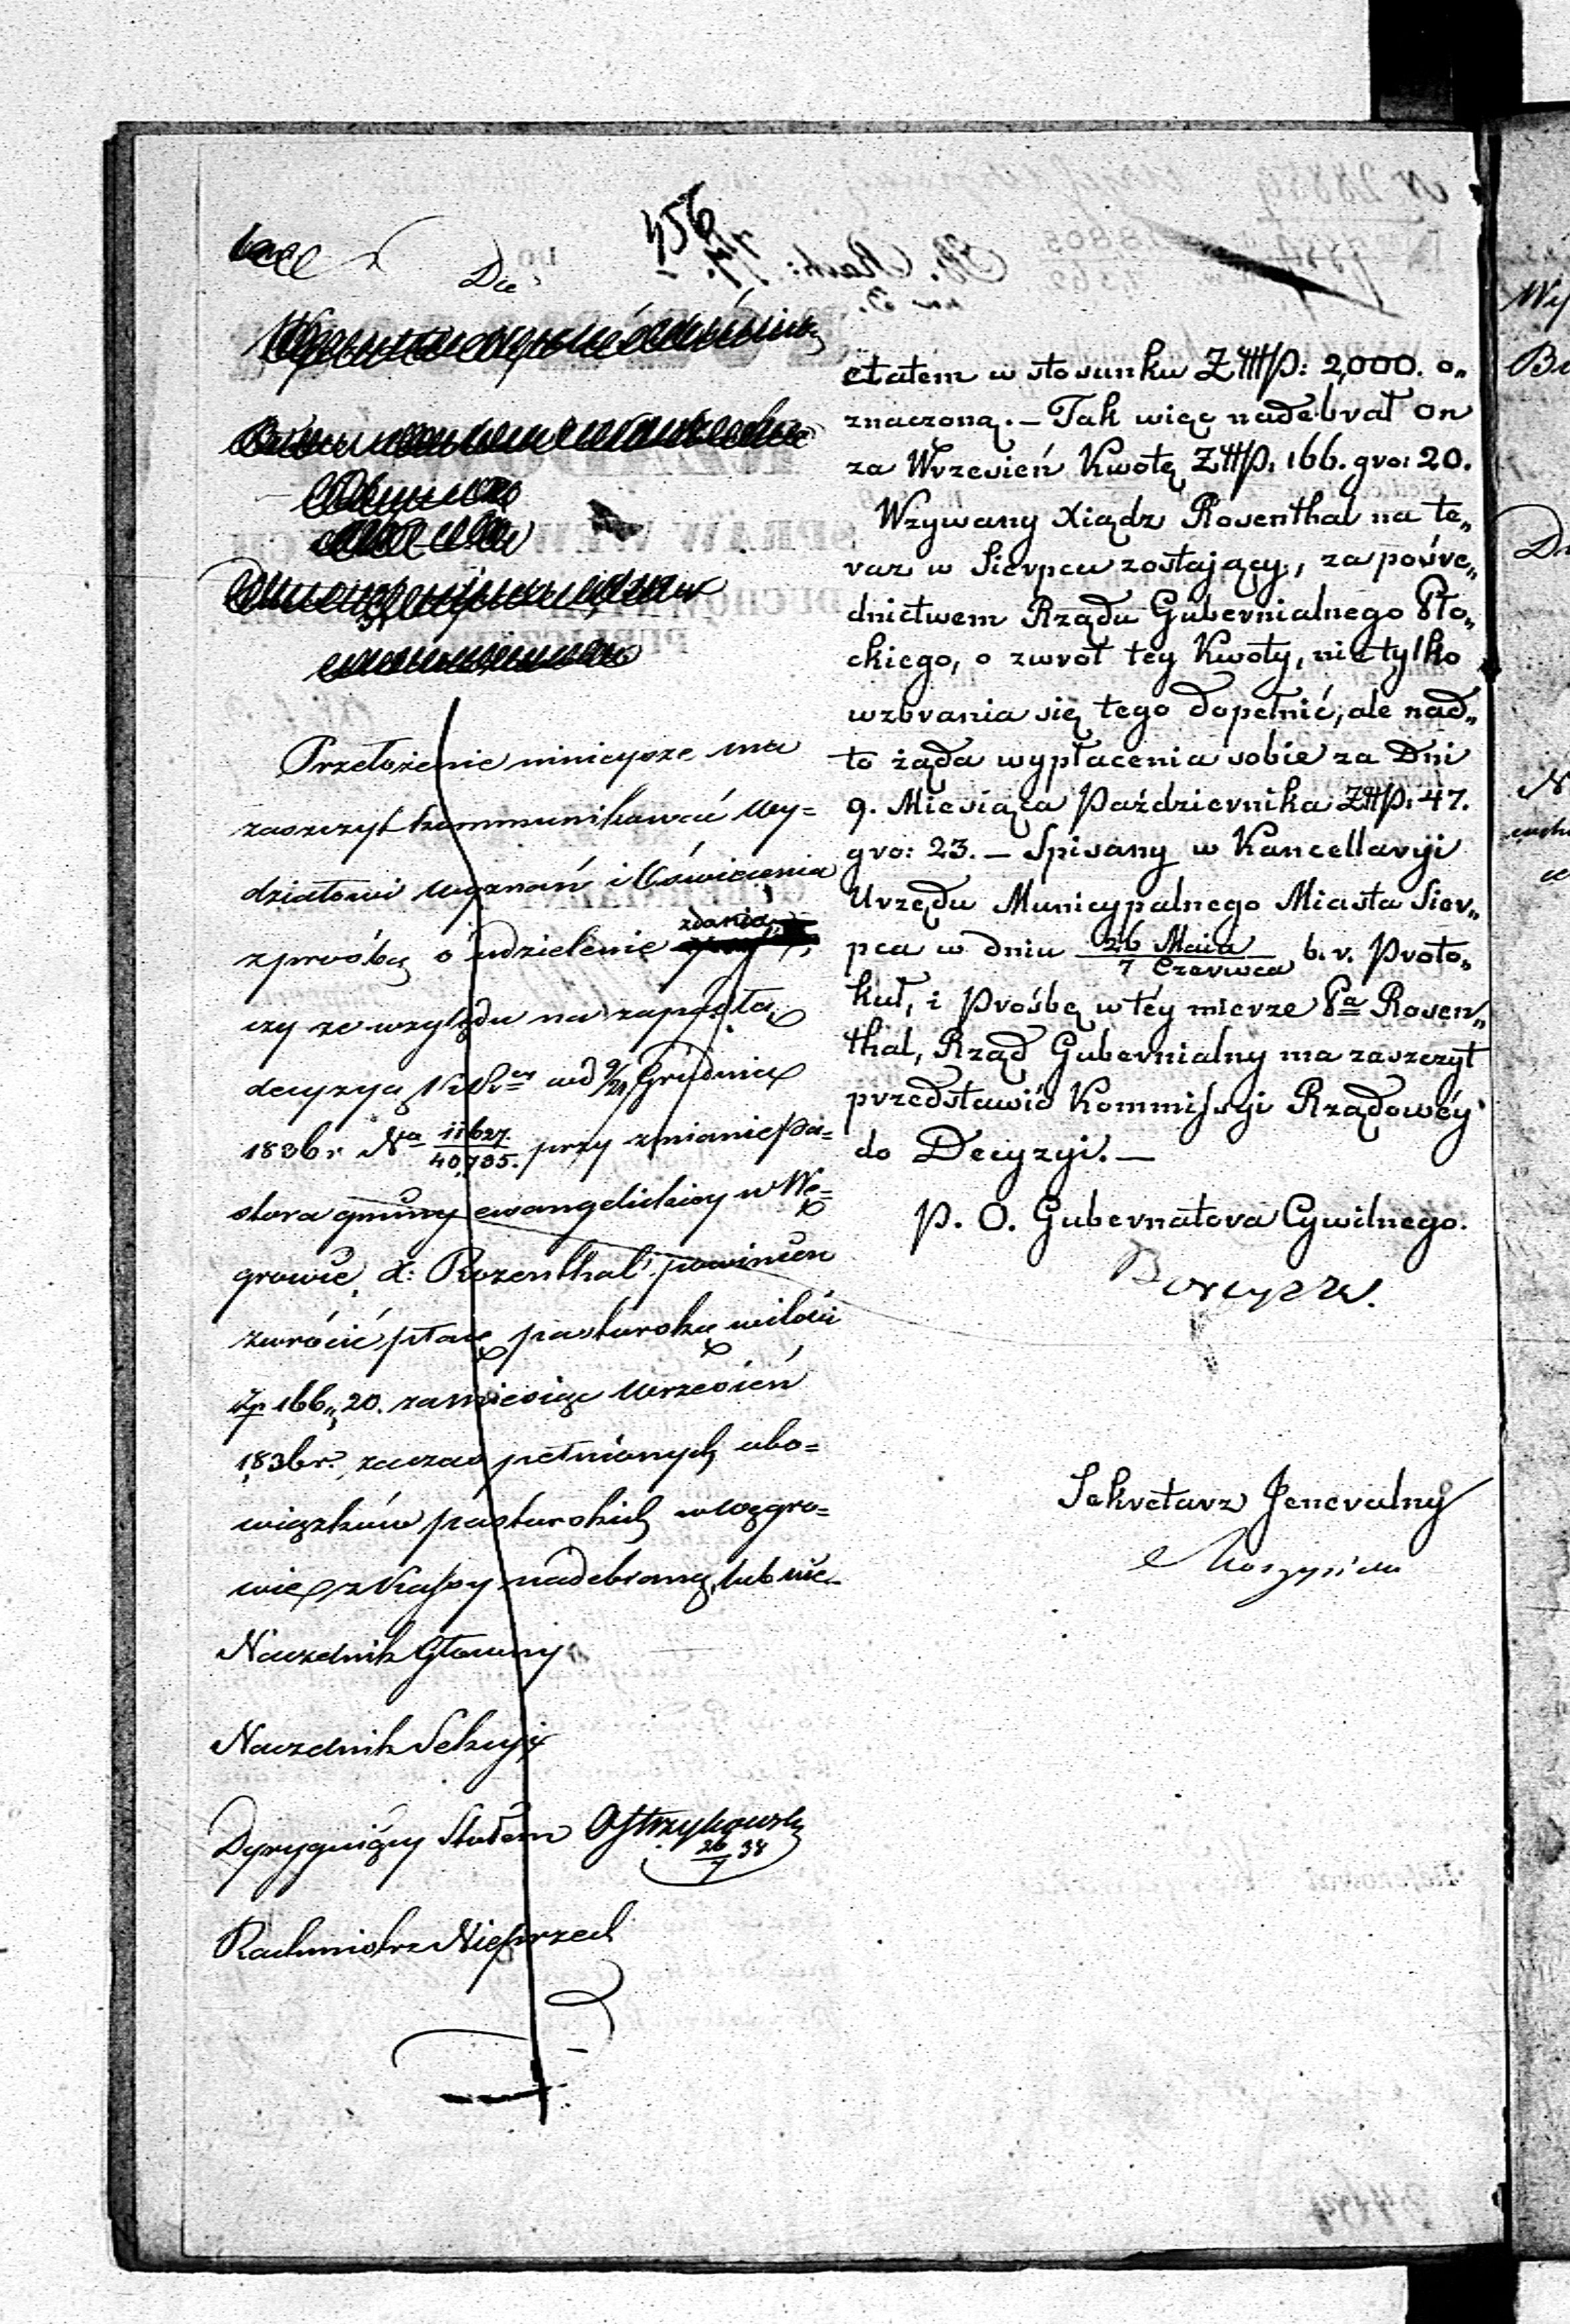 456
Do
Przełożenie ninieysze ma
zaszczyt kommunikować Wy=
działowi Wyznań i Oświecenia
z prośbą o udzielenie zdania,
czy ze względu na zapadłą
decyzyą od 9/21 Grudnia
1836 r Na 11627./40,785. przy zmianie Pa=
stora gminy ewangelickiey w Wę=
growie, X: Rozenthal powinien
zwrócić płacę pastorską w ilości
Zp 166„ 20. za miesiąc Wrzesień
1836 r. za czas pełnionych obo=
wiązków pastorskich w Węgro=
wie z Kassy nadebraną, lub nie.
Naczelnik Głowny
Naczelnik Sekcyi
Dyryguiący Stołem Ostrzykowski
26/7 38
Rachmistrz Nieprzecki
etatem w stosunku Złłp: 2,000. o„
znaczoną. — Tak więc nadebrał on
za Wrzesień Kwotę Złłp. 166. gro: 20.
Wzywany Xiądz Rosenthal na te„
raz w Sierpcu zostający, za pośre„
dnictwem Rządu Gubernialnego Pło„
ckiego, o zwrot tey Kwoty, nietylko
wzbrania się tego dopełnić, ale nad„
to żąda wypłacenia sobie za Dni
9. Miesiąca Października Złłp. 47.
gro: 23. — Spisany w Kancellaryi
Urzędu Municypalnego Miasta Sier„
pca w dniu 26 Maia/7 Czerwca b. r. Proto„
kuł, i Prośbę w téy mierze Pa Rosen„
thal, Rząd Gubernialny ma zaszczyt
przedstawić Kommissyi Rządowéy
do Decyzyi. —
P. O. Gubernatora Cywilnego.
Sekretarz Jeneralny